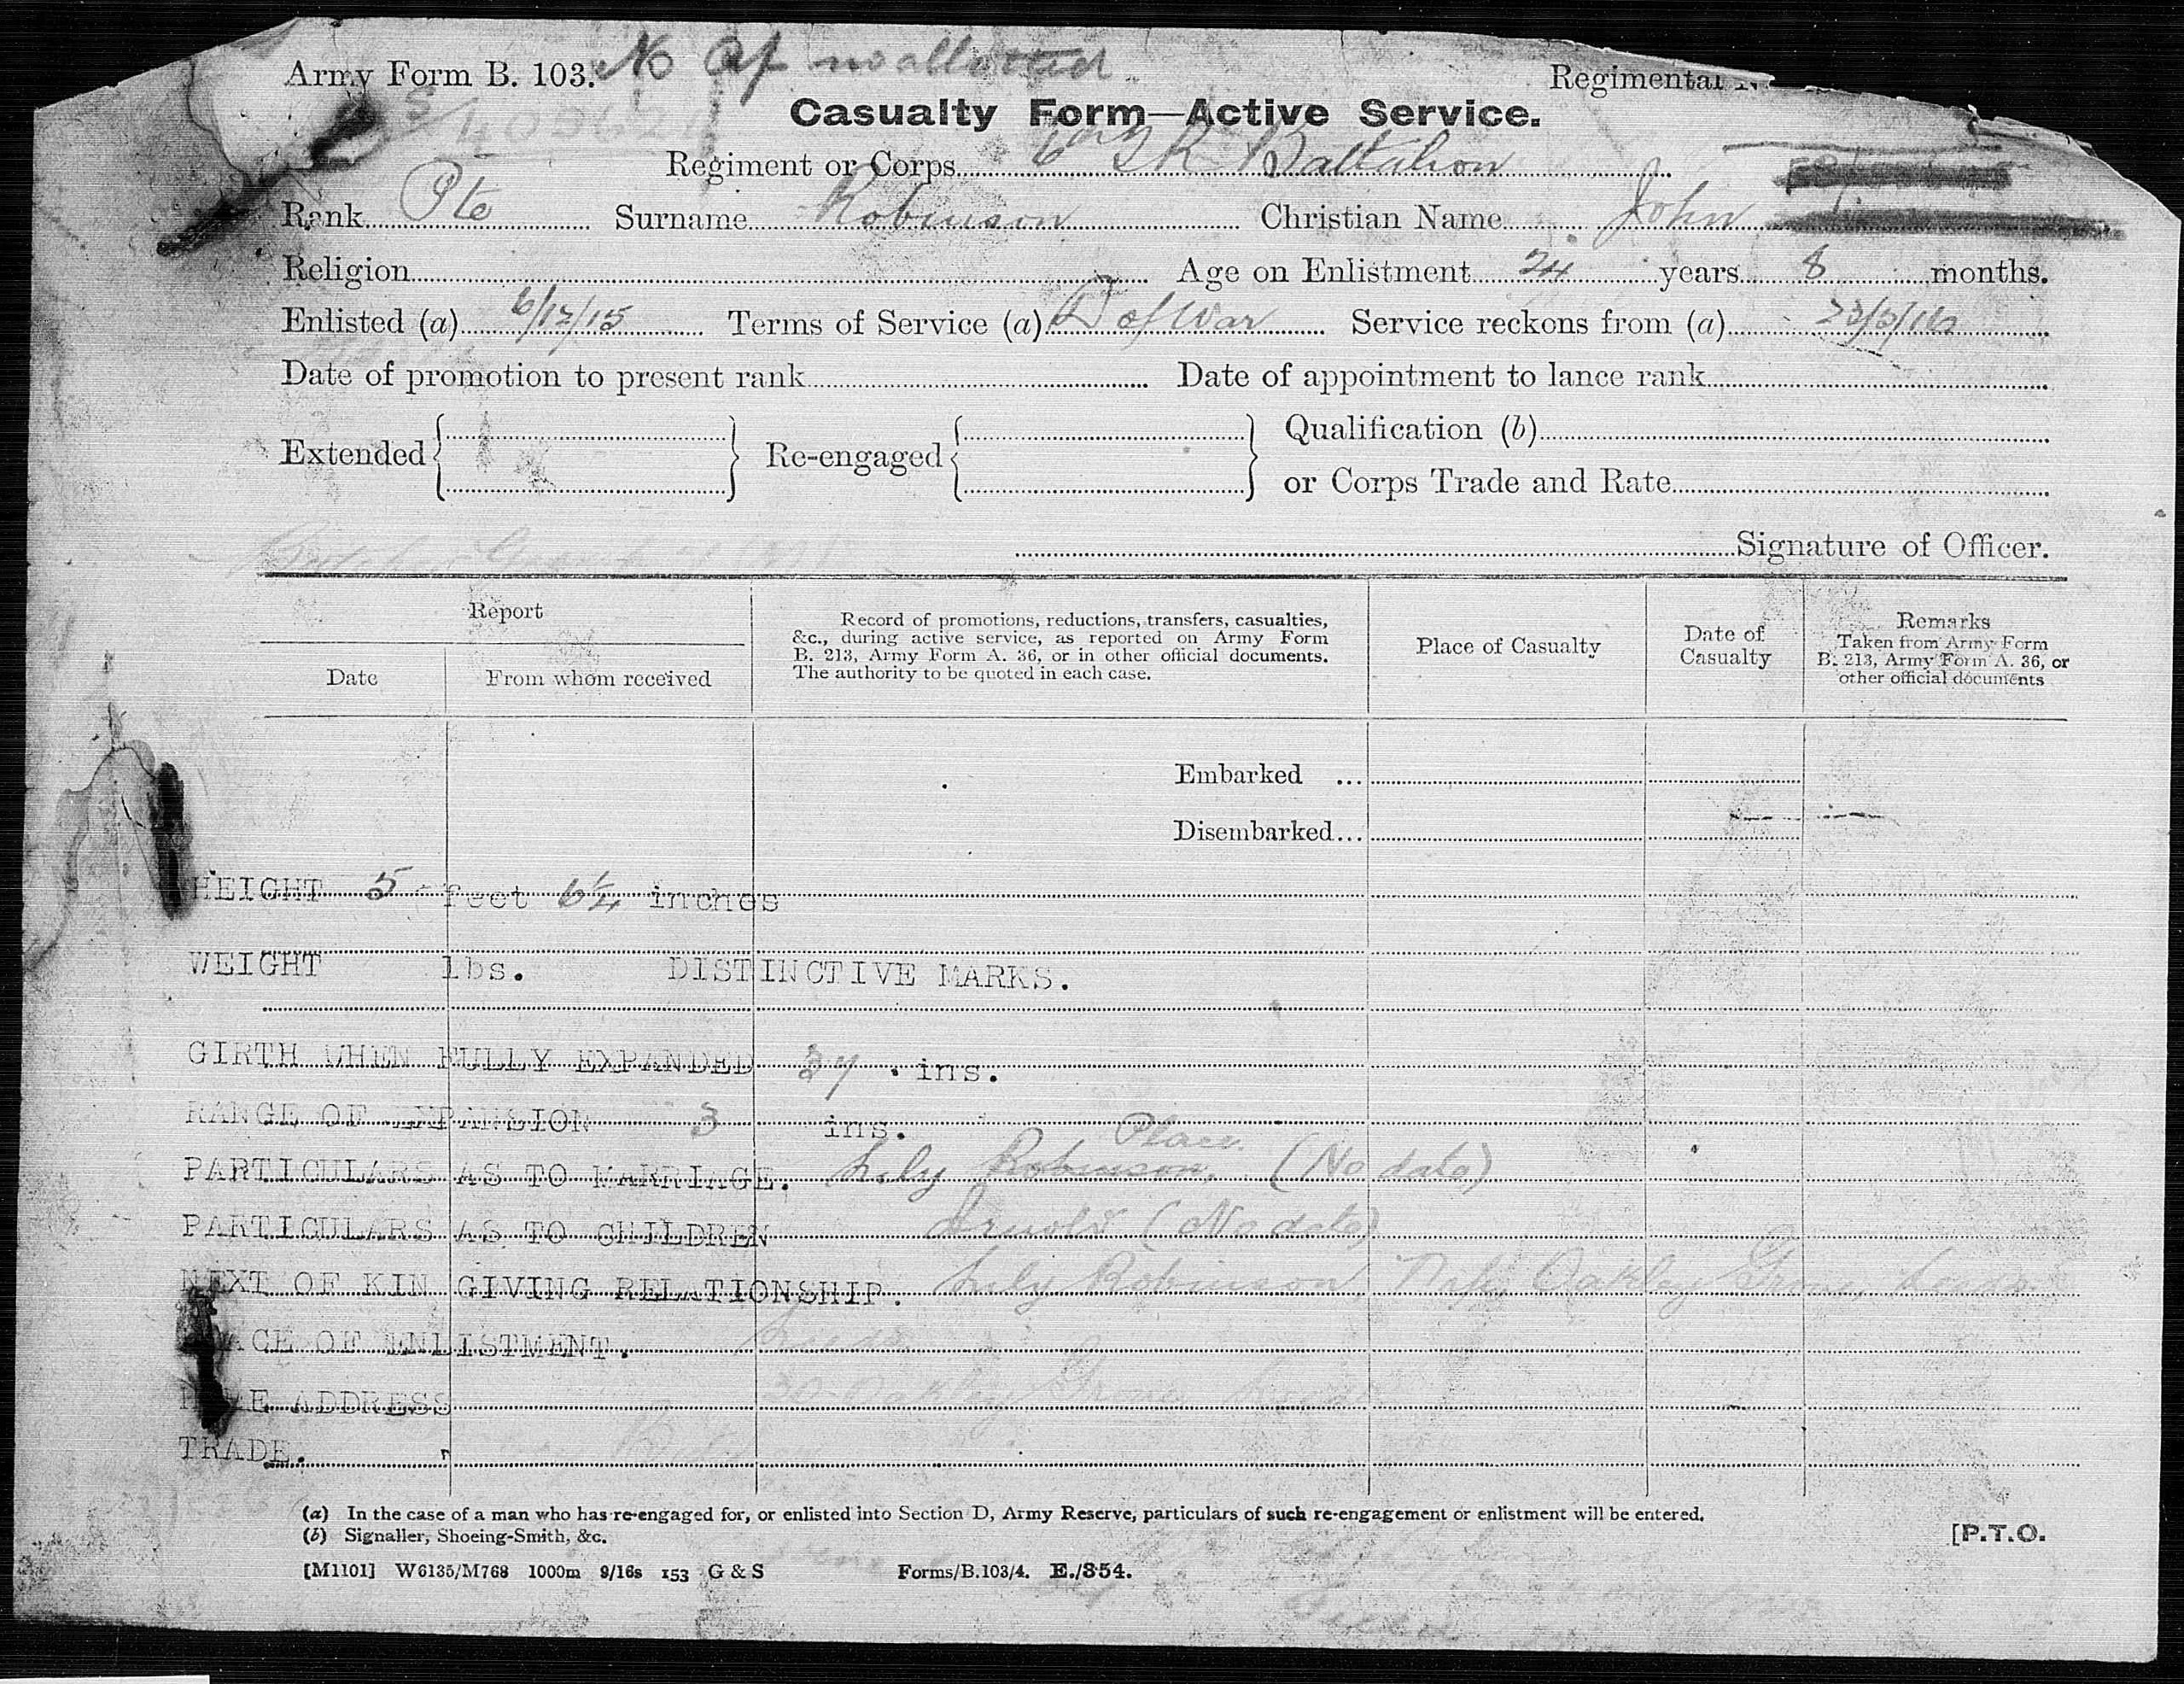 Army Form B. 103. No Af no allotted
Regimental
Casualty Form—Active Service.
Regiment or Corps 6th TR Battalion
Rank Pte Surname Robinson Christian Name John
Religion Age on Enlistment 24 years 8 months.
Enlisted (a) 6/12/15 Terms of Service (a) D of War Service reckons from (a)
Date of promotion to present rank Date of appointment to lance rank
Extended Re-engaged Qualification (b)
or Corps Trade and Rate
Signature of Officer.
Report
Date From whom received
Record of promotions, reductions, transfers, casualties,
&c., during active service, as reported on Army Form
B. 213, Army Form A. 36, or in other official documents.
The authority to be quoted in each case.
Place of Casualty
Date of
Casualty
Remarks
Taken from Army Form
B. 213, Army Form A. 36, or
other official documents
Embarked ...
Disembarked...
HEIGHT 5 feet 6¼ inches
WEIGHT lbs. DISTINCTIVE MARKS.
GIRTH WHEN FULLY EXPANDED 37 ins.
RANGE OF EXPANSION 3 ins.
Place
PARTICULARS AS TO MARRIAGE. Lily Robinson, (No date)
PARTICULARS AS TO CHILDREN Arnold (No date)
NEXT OF KIN GIVING RELATIONSHIP. Lily Robinson Wife, Oakley Grove, Leeds
PLACE OF ENLISTMENT. Leeds
HOME ADDRESS Oakley Grove Leeds
TRADE.
(a) In the case of a man who has re-engaged for, or enlisted into Section D, Army Reserve, particulars of such re-engagement or enlistment will be entered.
(b) Signaller, Shoeing-Smith, &c.
[P.T.O.
[M1101] W6135/M768 1000m 9/16s 153 G & S Forms/B.103/4. E./354.